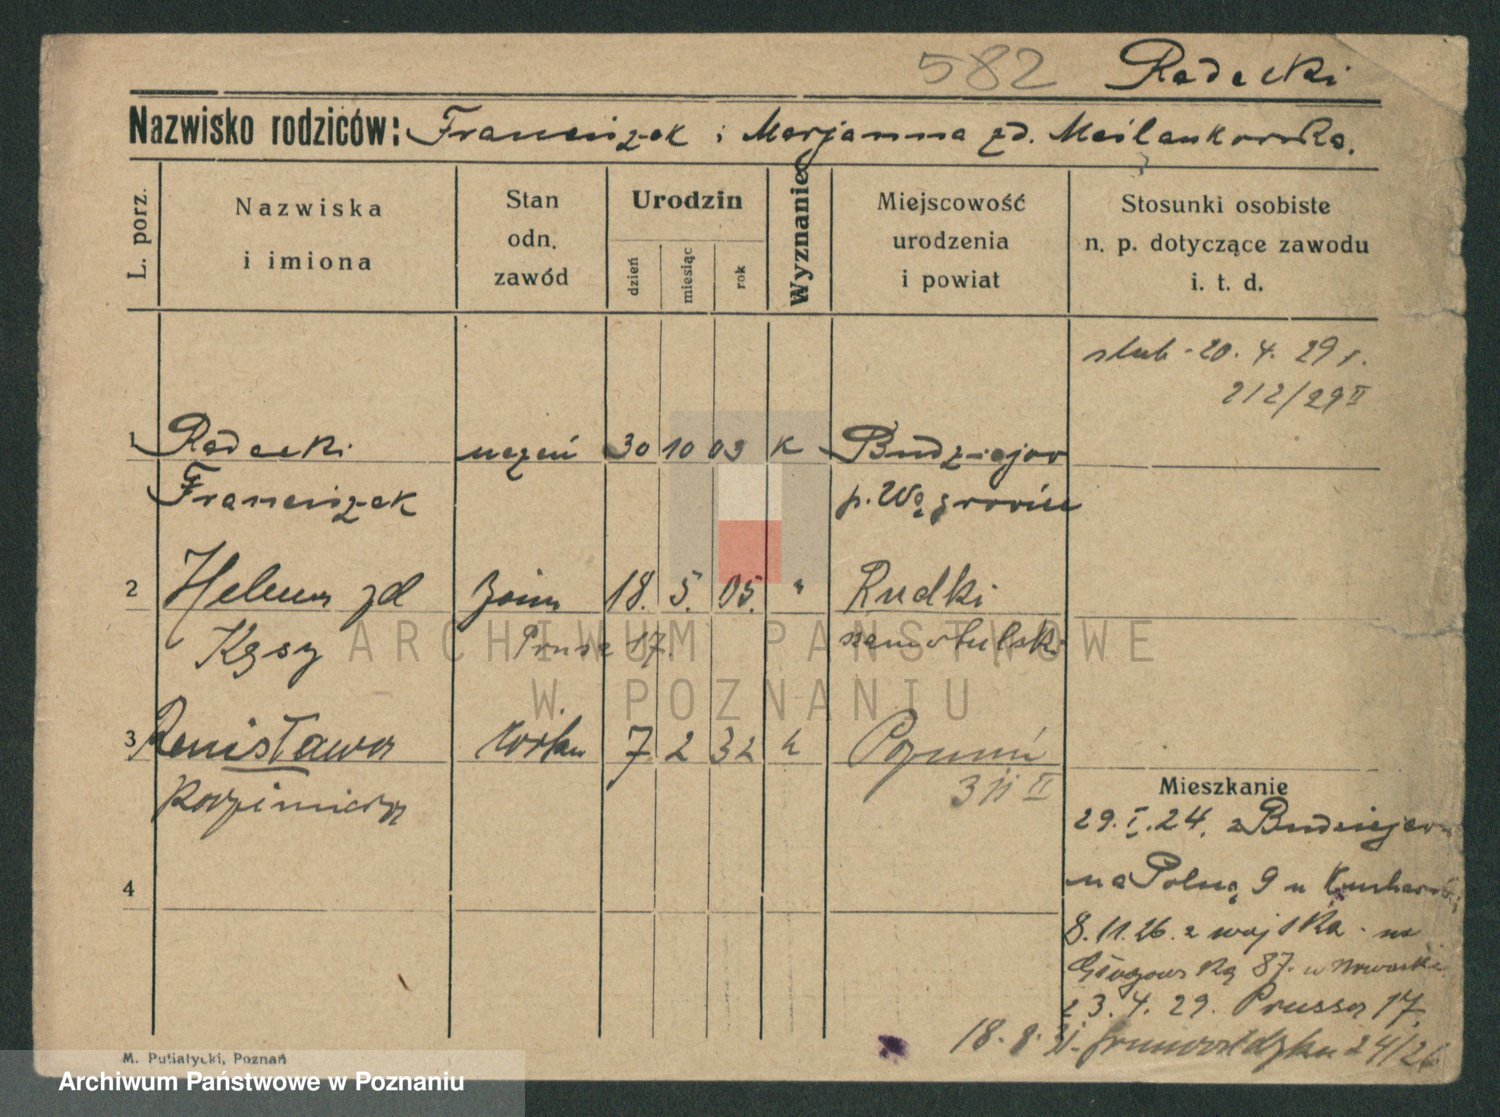 582 Radecki
Nazwisko rodziców: Franciszek i Marjanna zd. Maślankowska.
L. porz.
Nazwiska
i imiona
Stan
odn.
zawód
Urodzin
dzień
miesiąc
rok
Wyznanie
Miejscowość
urodzenia
i powiat
Stosunki osobiste
n. p. dotyczące zawodu
i. t. d.
slub - 20. 4. 29 r.
212/29 II
1 Radecki uczeń 30 10 03 K Budziejow
Franciszek p. Wągrowiec
2 Helena zd żona 18. 5. 05. " Rudki
Kęsy Prusa 17. szamotulski
3 córka 7 2 32 k Poznań
Kazimiera 311 II
4
Mieszkanie
29. I. 24. z Budziejewa
na Polną 9 u
8. 11. 26. z wojska na
Głogowską 87. u Nowacki
23. 4. 29. Prussa 17.
18. 8. Grunwaldzka 24/26
M. Putiatycki, Poznań
ARCHIWUM PAŃSTWOWE
W POZNANIU
Archiwum Państwowe w Poznaniu